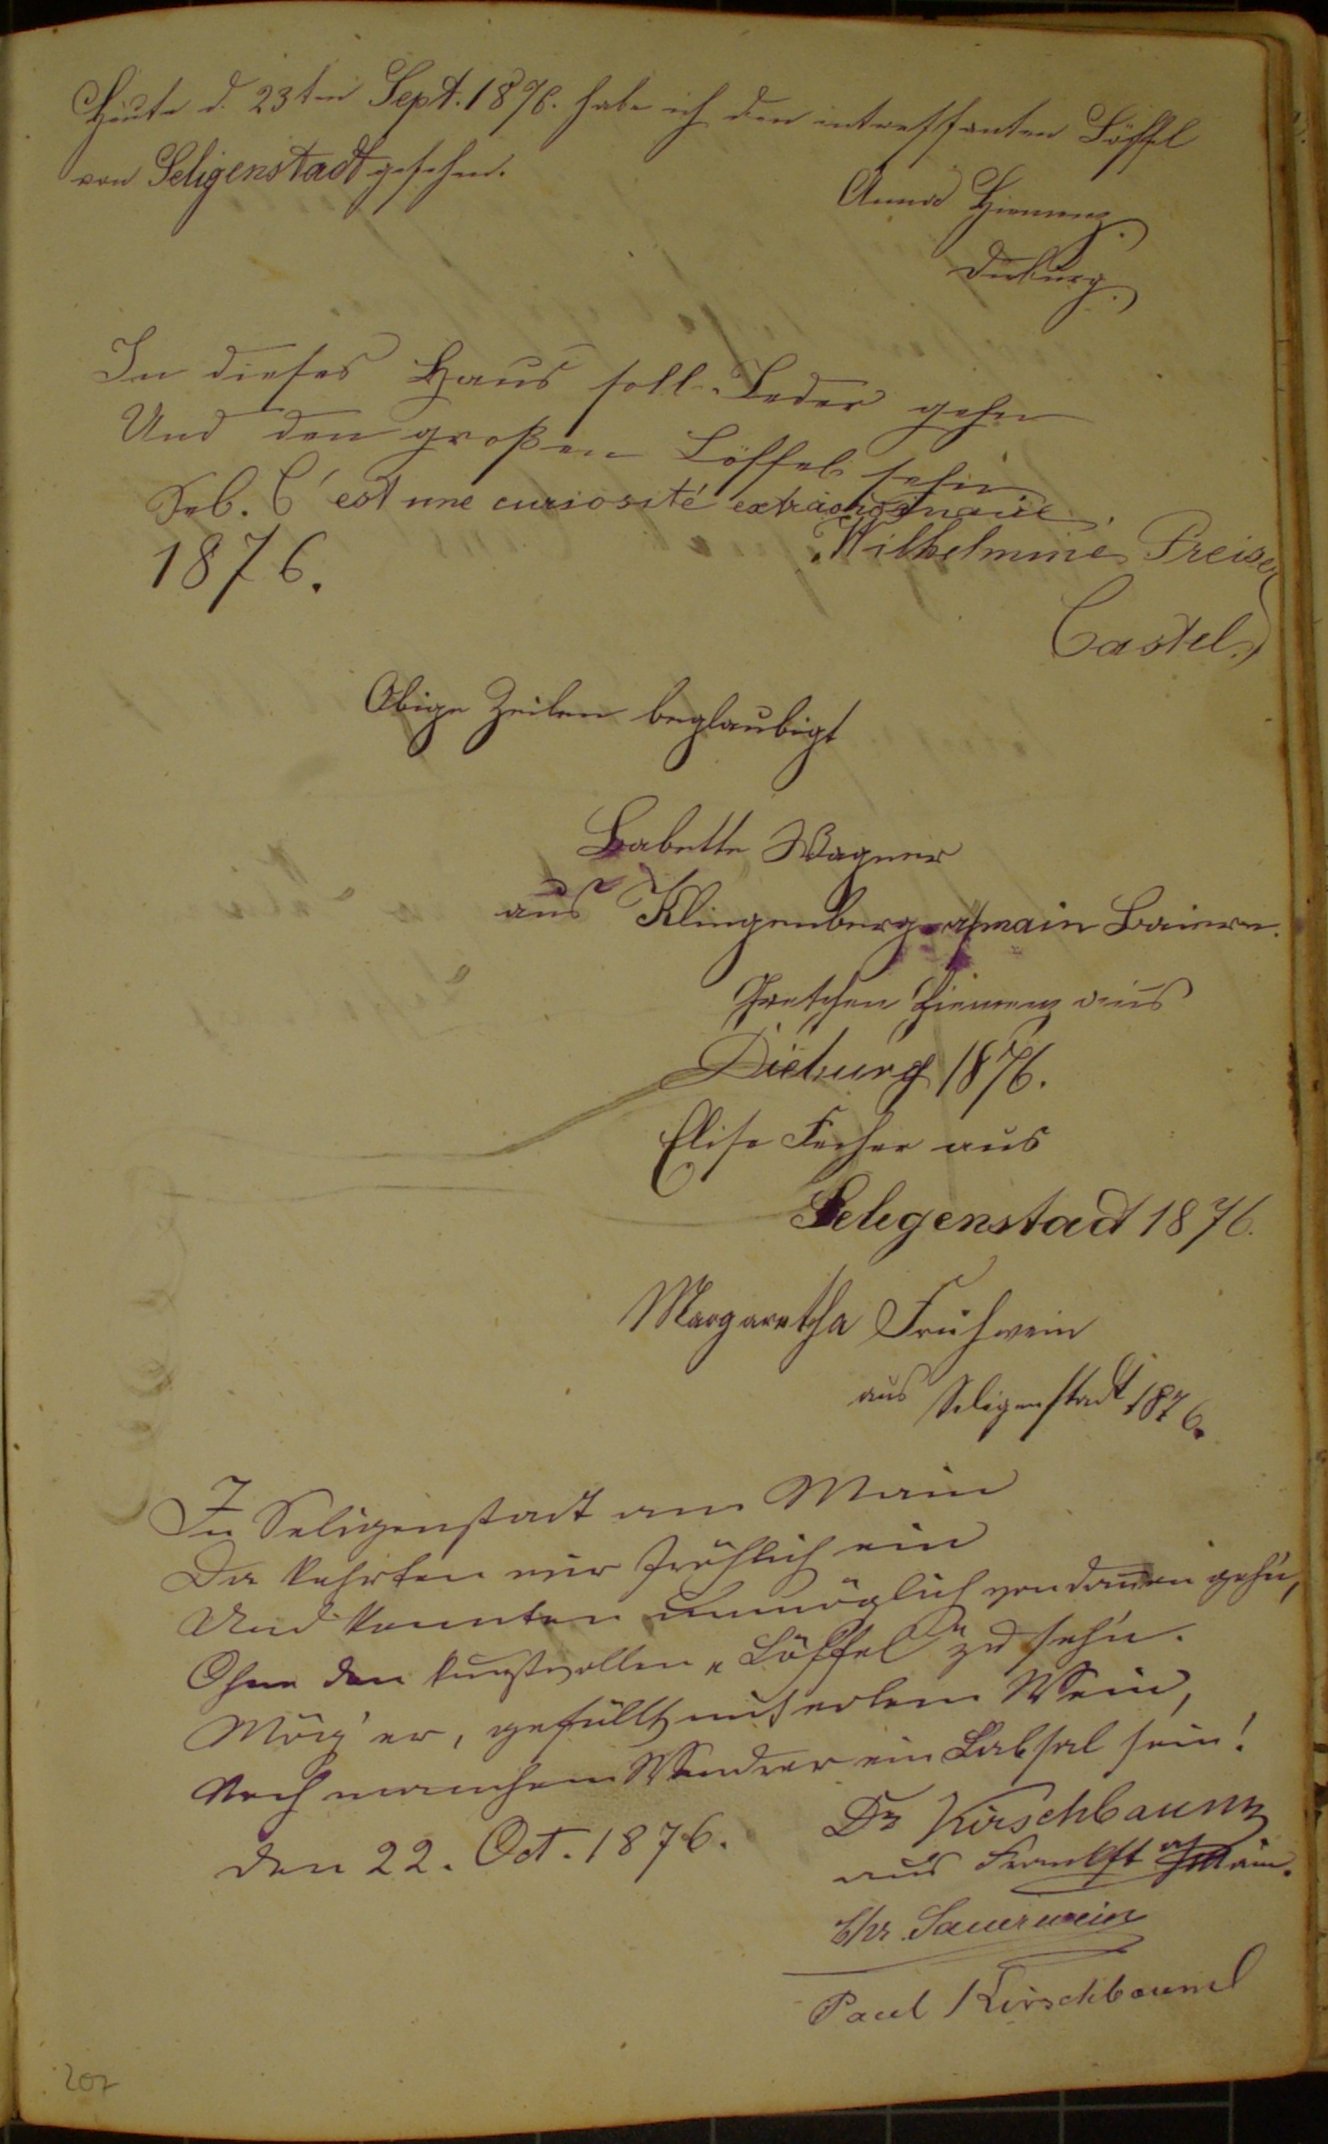 Heute d. 23ten Sept. 1876. habe ich den intressanten Löffel
von Seligenstadt gesehen.
Anna Hiemenz.
Dieburg.
In dieses Haus soll Jeder gehn
Und den großen Löffel sehn
C'est une curiosité extraordinaire.
1876.
Wilhelmine Preiser
Castel.
Obige Zeilen beglaubigt
Babette Wagner
aus Klingenberg a/main Baiern.
Gretchen Hiemenz aus
Dieburg 1876.
Elise Fecher aus
Selegenstadt 1876.
Margaretha Frühwein
aus Seligenstadt 1876.
In Seligenstadt am Main
Da kehrten wir fröhlich ein
Und konnten unmöglich von dannen gehn,
Ohne den kunstvollen „Löffel" zu seh'n.
Mög' er, gefüllt mit edlem Wein,
Noch manchem Wandrer ein Labsal sein!
den 22. Oct. 1876.
Dr Kirschbaum
aus Frankft a/Main.
Chr. Sauerwein
Paul Kirschbaum
207